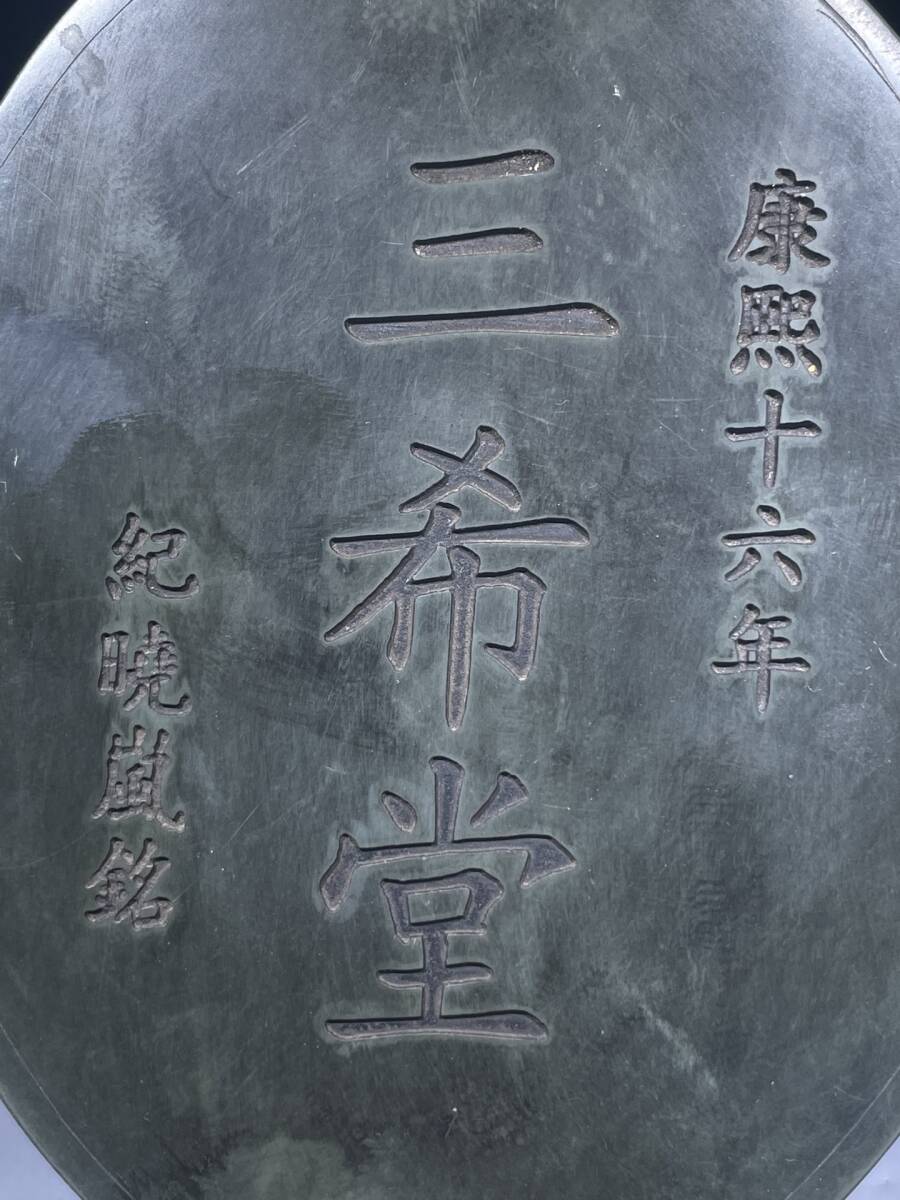 康熙十六年
三希堂
紀曉嵐銘